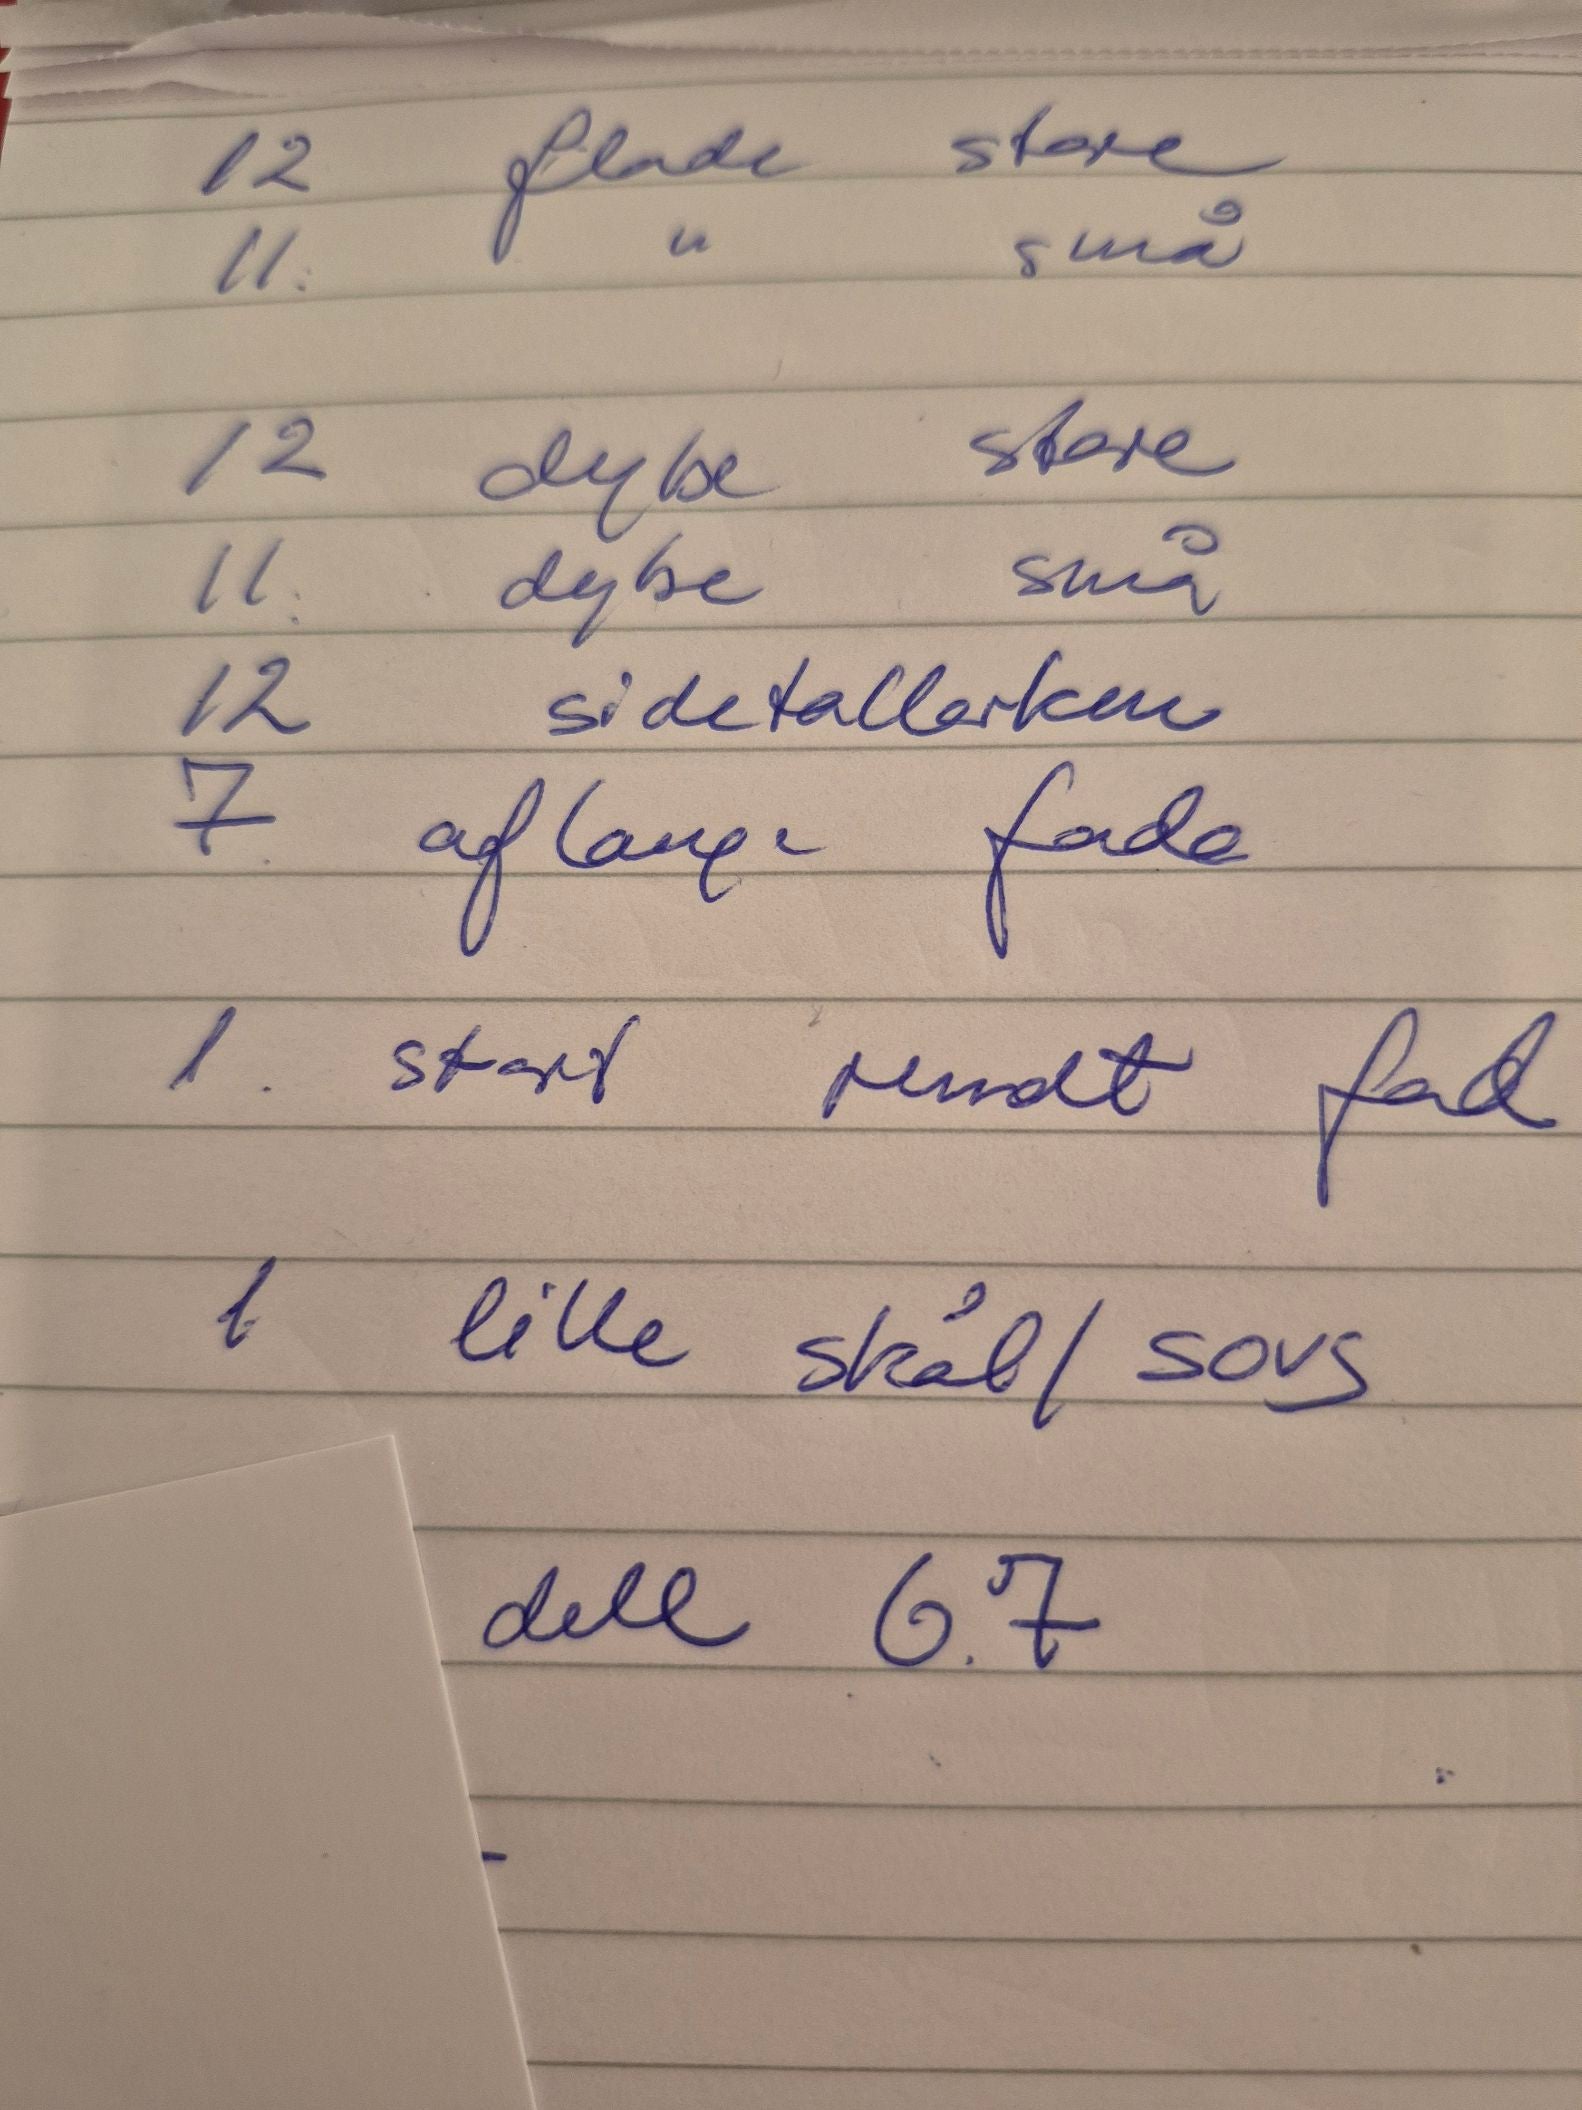 12 flade store
11. " små
12 dybe store
11. dybe små
12 sidetallerken
7 aflange fade
1. stort rundt fad
1 lille skål/sovs
dell 6.7